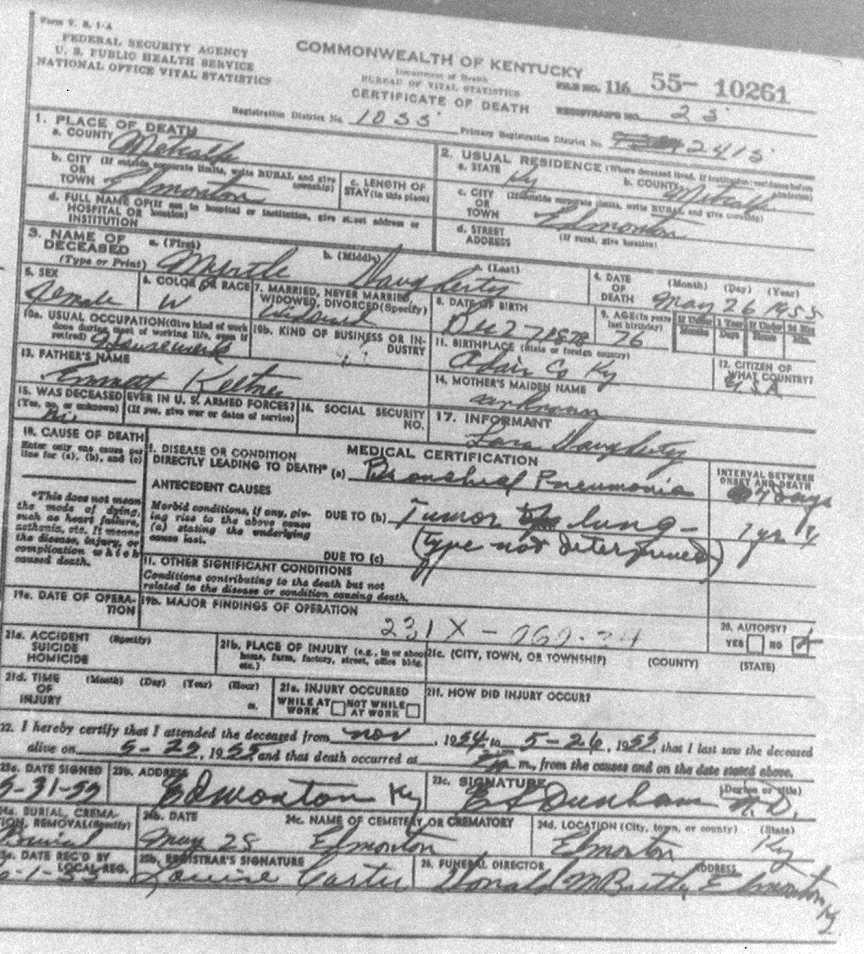 Form V. S. 1-A
FEDERAL SECURITY AGENCY
U. S. PUBLIC HEALTH SERVICE
NATIONAL OFFICE VITAL STATISTICS
COMMONWEALTH OF KENTUCKY
Department of Health
BUREAU OF VITAL STATISTICS
CERTIFICATE OF DEATH
FILE NO. 116 55- 10261
REGISTRAR'S NO. 25
Registration District No. 1055 Primary Registration District No. 2415
1. PLACE OF DEATH
a. COUNTY Metcalfe
b. CITY (If outside corporate limits, write RURAL and give township)
OR
TOWN Edmonton
c. LENGTH OF STAY (in this place)
d. FULL NAME OF (If not in hospital or institution, give street address or location)
HOSPITAL OR
INSTITUTION
2. USUAL RESIDENCE (Where deceased lived. If institution: residence before admission)
a. STATE Ky b. COUNTY Metcalfe
c. CITY (If outside corporate limits, write RURAL and give township)
OR
TOWN Edmonton
d. STREET (If rural, give location)
ADDRESS
3. NAME OF DECEASED
(Type or Print)
a. (First) b. (Middle) c. (Last)
Myrtle Daugherty
4. DATE OF DEATH (Month) (Day) (Year)
May 26 1955
5. SEX
Female
6. COLOR OR RACE
W
7. MARRIED, NEVER MARRIED, WIDOWED, DIVORCED (Specify)
Widowed
8. DATE OF BIRTH
Dec 27 1878
9. AGE (In years last birthday)
76
If Under 1 Year
Months Days
If Under 24 Hrs
Hours Min.
10a. USUAL OCCUPATION (Give kind of work done during most of working life, even if retired)
Housework
10b. KIND OF BUSINESS OR INDUSTRY
11. BIRTHPLACE (State or foreign country)
Adair Co Ky
12. CITIZEN OF WHAT COUNTRY?
USA
13. FATHER'S NAME
Emmett Keltner
14. MOTHER'S MAIDEN NAME
unknown
15. WAS DECEASED EVER IN U. S. ARMED FORCES?
(Yes, no, or unknown) (If yes, give war or dates of service)
No
16. SOCIAL SECURITY NO.
17. INFORMANT
Daugherty
18. CAUSE OF DEATH
Enter only one cause per line for (a), (b), and (c)
*This does not mean the mode of dying, such as heart failure, asthenia, etc. It means the disease, injury, or complication which caused death.
MEDICAL CERTIFICATION
INTERVAL BETWEEN ONSET AND DEATH
I. DISEASE OR CONDITION DIRECTLY LEADING TO DEATH* (a) Bronchial Pneumonia days
ANTECEDENT CAUSES
Morbid conditions, if any, giving rise to the above cause (a) stating the underlying cause last.
DUE TO (b) Tumor lung - 1 yr
DUE TO (c) (type not determined)
11. OTHER SIGNIFICANT CONDITIONS
Conditions contributing to the death but not related to the disease or condition causing death.
19a. DATE OF OPERATION
19b. MAJOR FINDINGS OF OPERATION
231X -
20. AUTOPSY?
YES NO
21a. ACCIDENT (Specify)
SUICIDE
HOMICIDE
21b. PLACE OF INJURY (e.g., in or about home, farm, factory, street, office bldg. etc.)
21c. (CITY, TOWN, OR TOWNSHIP) (COUNTY) (STATE)
21d. TIME OF INJURY (Month) (Day) (Year) (Hour) m.
21e. INJURY OCCURRED
WHILE AT WORK NOT WHILE AT WORK
21f. HOW DID INJURY OCCUR?
22. I hereby certify that I attended the deceased from Nov, 1954 to 5-26, 1955, that I last saw the deceased
alive on 5-25, 1955 and that death occurred at m., from the causes and on the date stated above.
23a. DATE SIGNED
5-31-55
23b. ADDRESS
Edmonton Ky
23c. SIGNATURE (Degree or title)
E S Dunham M.D.
24a. BURIAL, CREMATION, REMOVAL (Specify)
Burial
24b. DATE
May 28
24c. NAME OF CEMETERY OR CREMATORY
Edmonton
24d. LOCATION (City, town, or county) (State)
Edmonton Ky
25a. DATE REC'D BY LOCAL REG.
6-1-55
25b. REGISTRAR'S SIGNATURE
Louise Carter
26. FUNERAL DIRECTOR ADDRESS
Donald Edmonton Ky